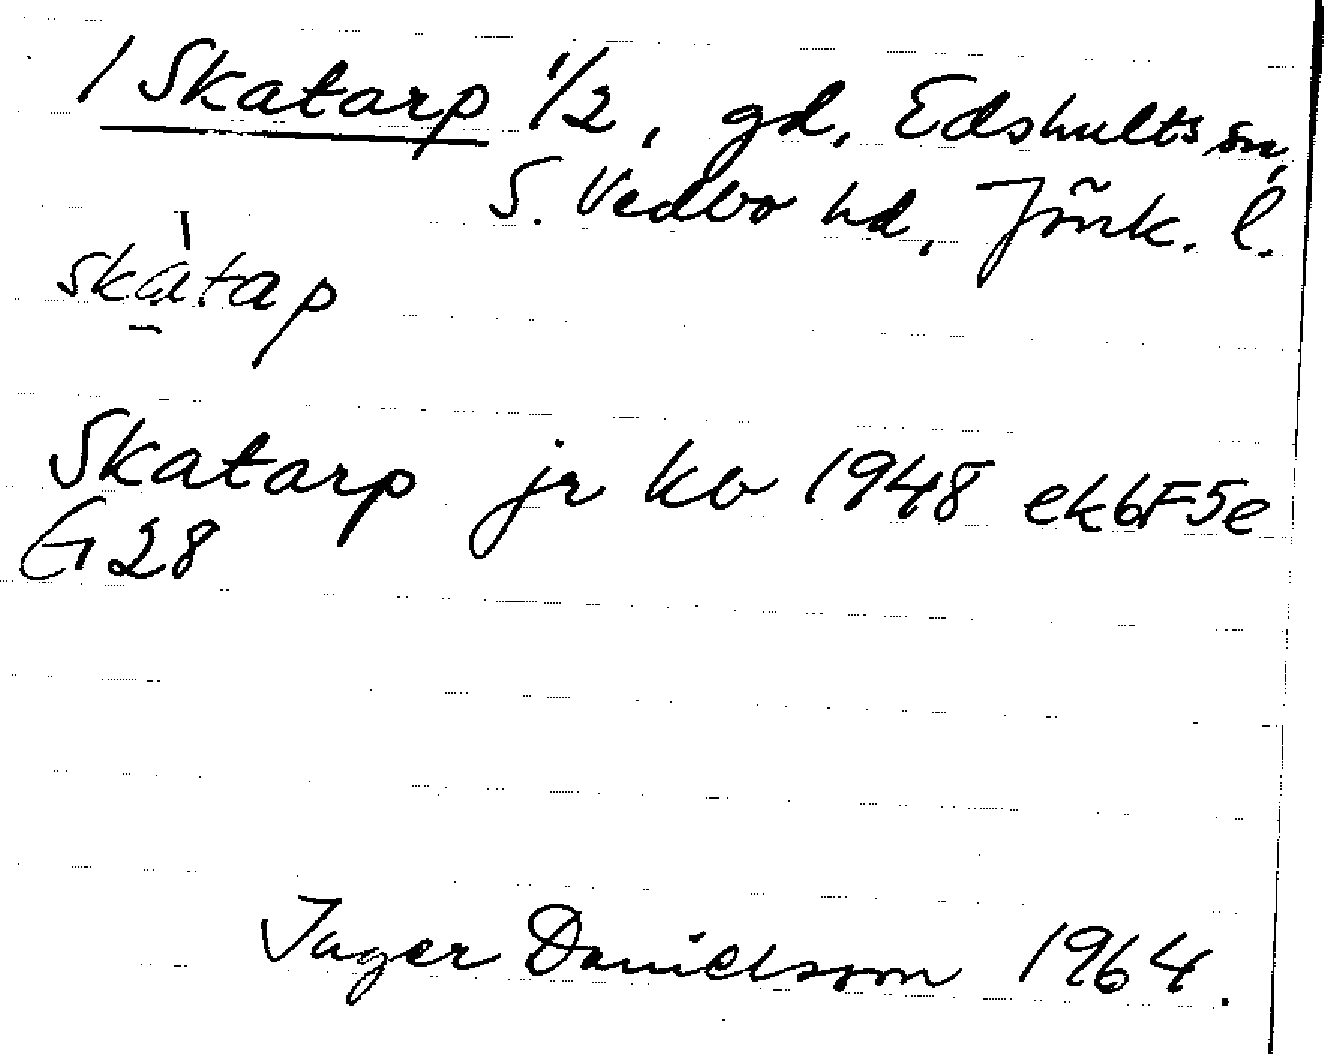 / Skatarp 1/2, gd, Edshults sn,
S. Vedbo hd, Jönk. l.
skàtap
Skatarp jr kb 1948 ek6F5e
G28
Inger Danielsson 1964.